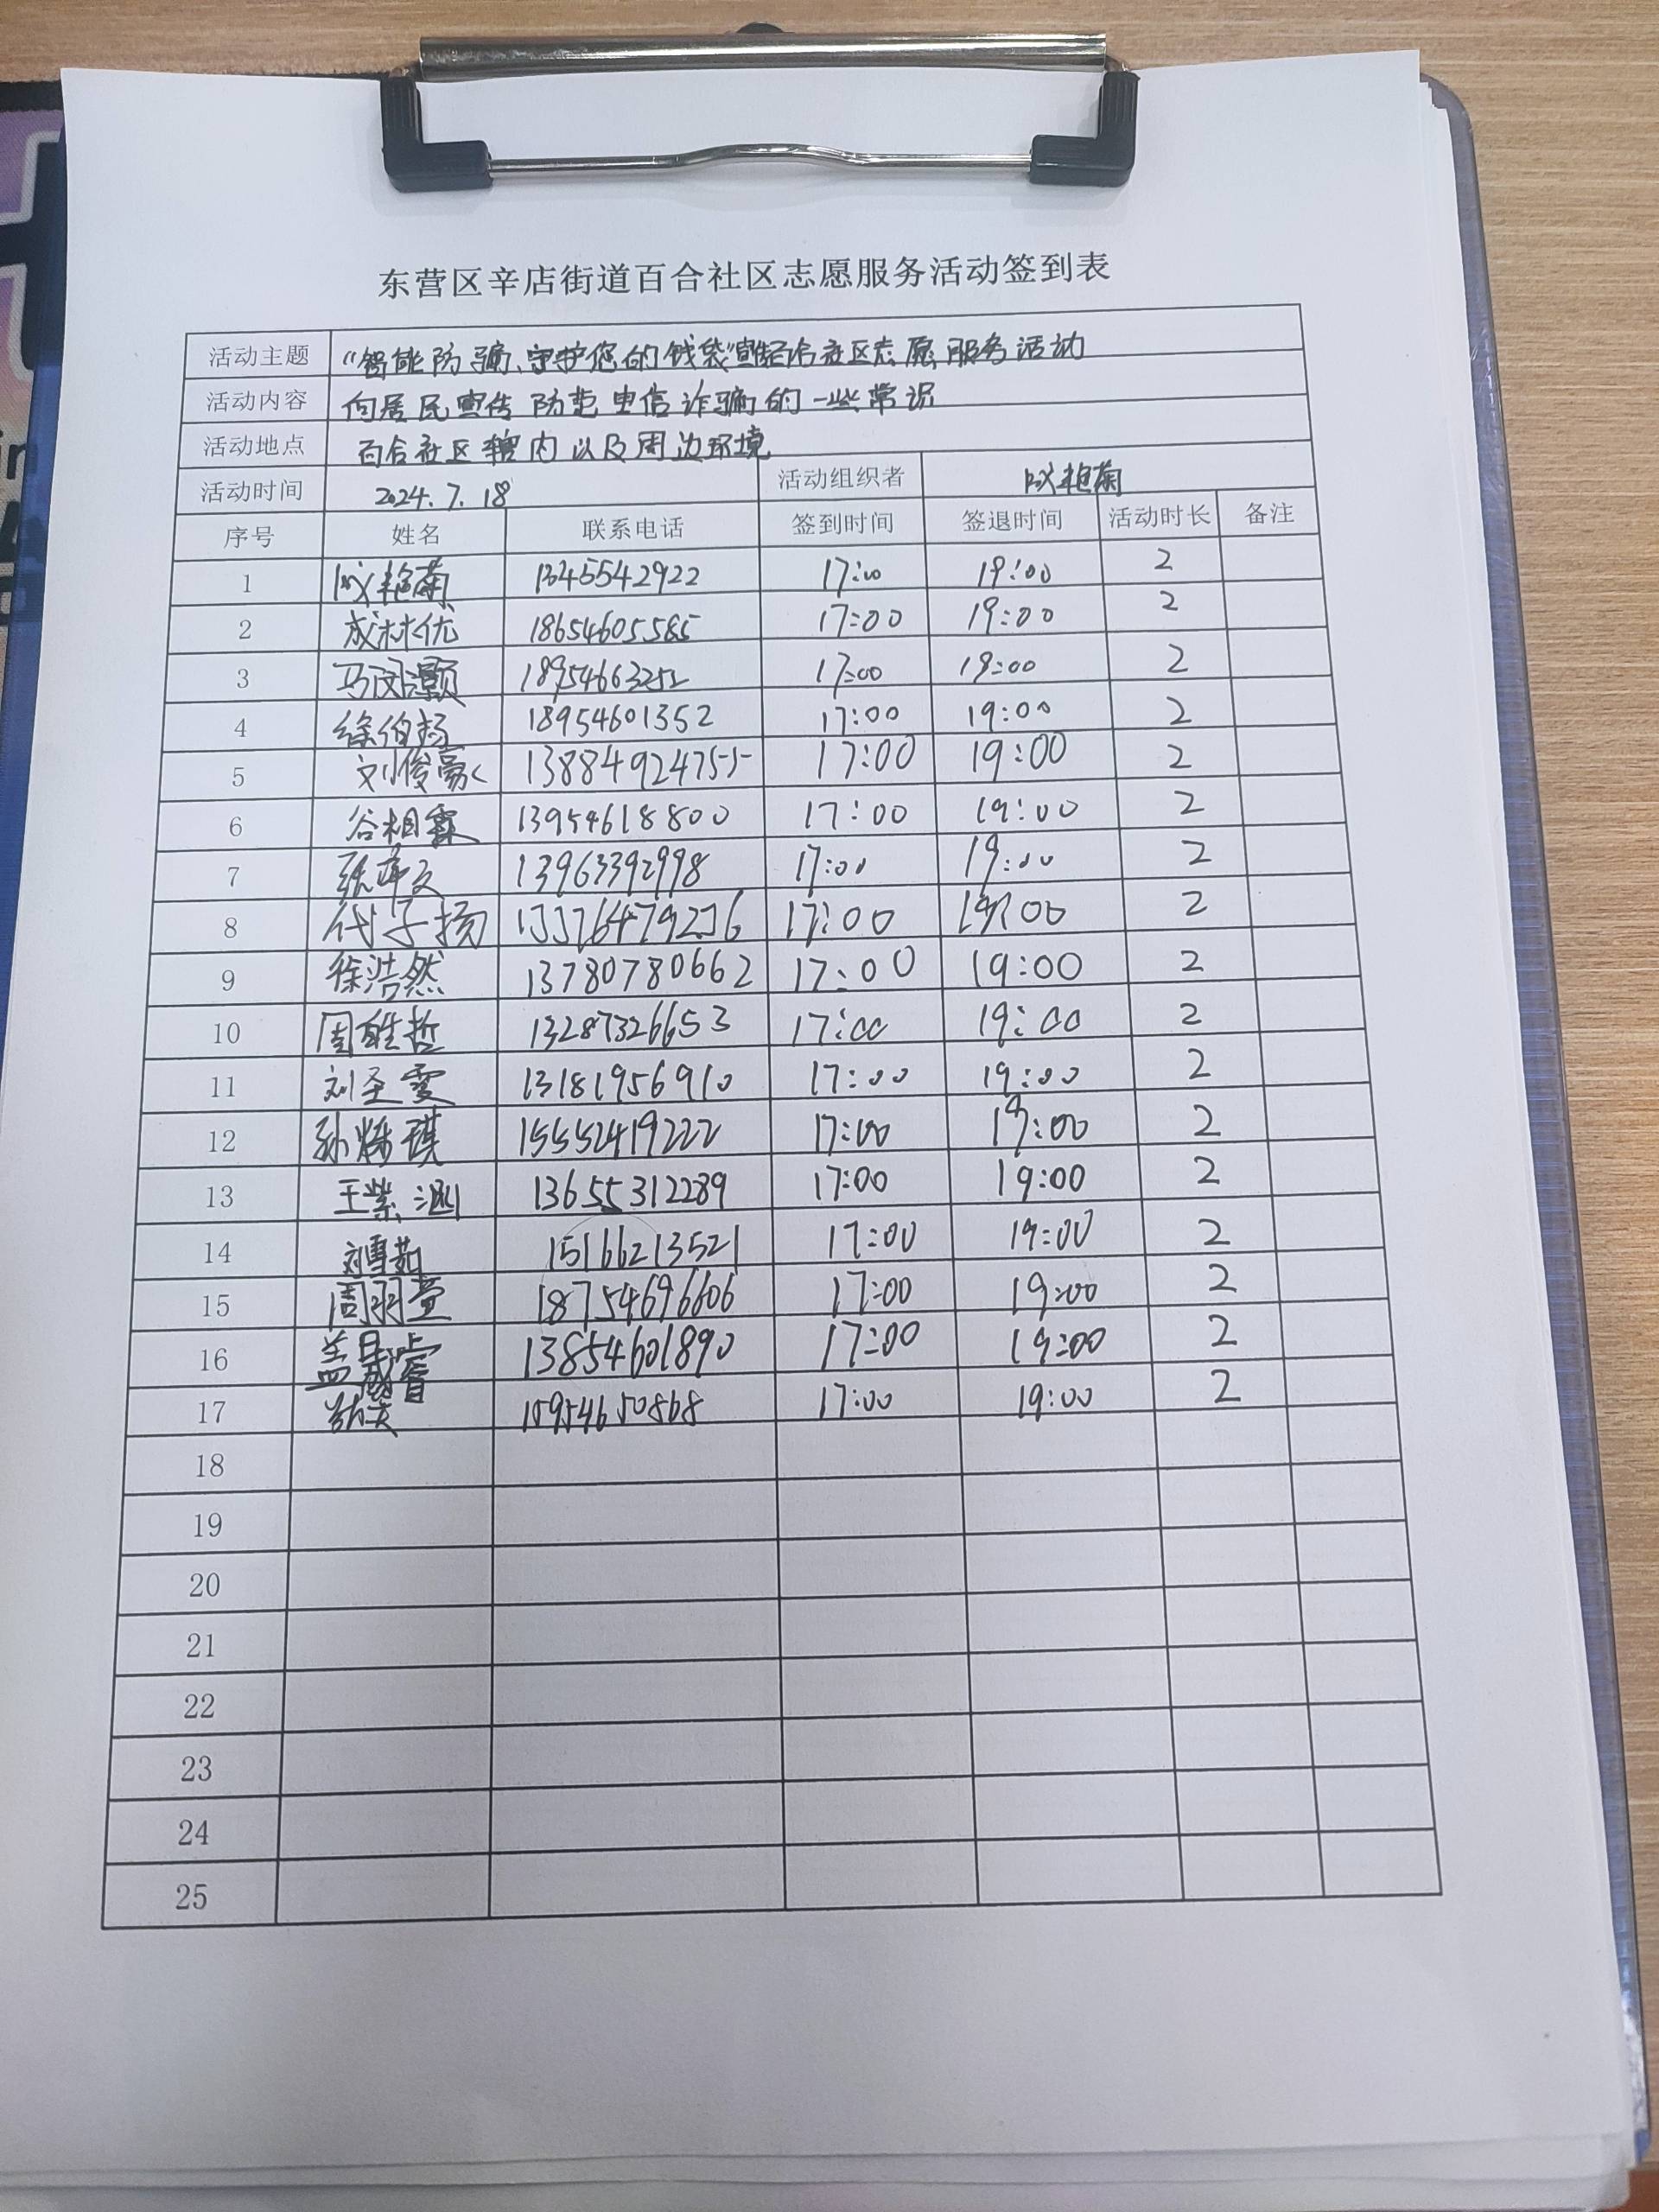 东营区辛店街道百合社区志愿服务活动签到表
活动主题 "智能防骗、守护您的钱袋"百合社区志愿服务活动
活动内容 向居民宣传防范电信诈骗的一些常识
活动地点 百合社区辖内以及周边环境
活动时间 2024.7.18 活动组织者
序号 姓名 联系电话 签到时间 签退时间 活动时长 备注
1 13455542922 17:00 19:00 2
2 成林优 18654605585 17:00 19:00 2
3 马闵灏 18954663252 17:00 19:00 2
4 徐伯扬 18954601352 17:00 19:00 2
5 刘俊豪 13884924755 17:00 19:00 2
6 谷相霖 13954618800 17:00 19:00 2
7 13963392998 17:00 19:00 2
8 代子扬 13376479236 17:00 19:00 2
9 徐浩然 13780780662 17:00 19:00 2
10 周胜哲 13287326653 17:00 19:00 2
11 刘圣雯 13181956910 17:00 19:00 2
12 15552419222 17:00 19:00 2
13 王紫涵 13655312289 17:00 19:00 2
14 刘雪茹 15166213521 17:00 19:00 2
15 周羽萱 18754696606 17:00 19:00 2
16 盖晟睿 13854601890 17:00 19:00 2
17 15954650868 17:00 19:00 2
18
19
20
21
22
23
24
25